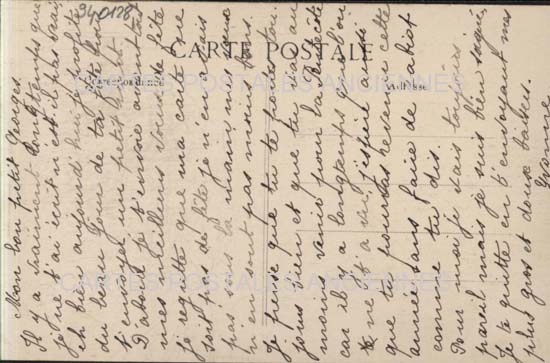 340128
CARTE POSTALE
Correspondance
Adresse
CARTES POSTALES ANCIENNES
CARTES POSTALES ANCIENNES
Mon bon petit Georges
Il y a vraiment longtemps que
je ne t'ai écrit n'est-il pas vrai
eh bien aujourd'hui je profite
du beau jour de ta fête pour
t'envoyer un petit mot.
D'abord je t'envoie toutes
mes meilleurs voeux de fête
je regrette que ma carte ne
soit pas de fête je n'en avais
pas sous la main, mes voeux
n'en sont pas moins bons.
Je pense que tu te portes tou-
jours bien et que tu
mais venir pour la Pentecôte
car il y a longtemps que l'on
ne t'a vu, j'espère
que tu pourras revenir cette
année sans faire de
comme tu dis.
Pour moi je suis toujours
pareil mais je suis bien
Je te quitte en t'envoyant mes
plus gros et doux baisers.
Yvonne